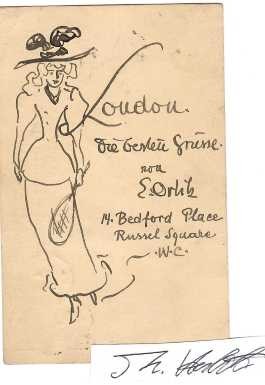 London.
Die besten Grüsse.
von
E. Orlik
14. Bedford Place
Russel Square
W.C.
Th.